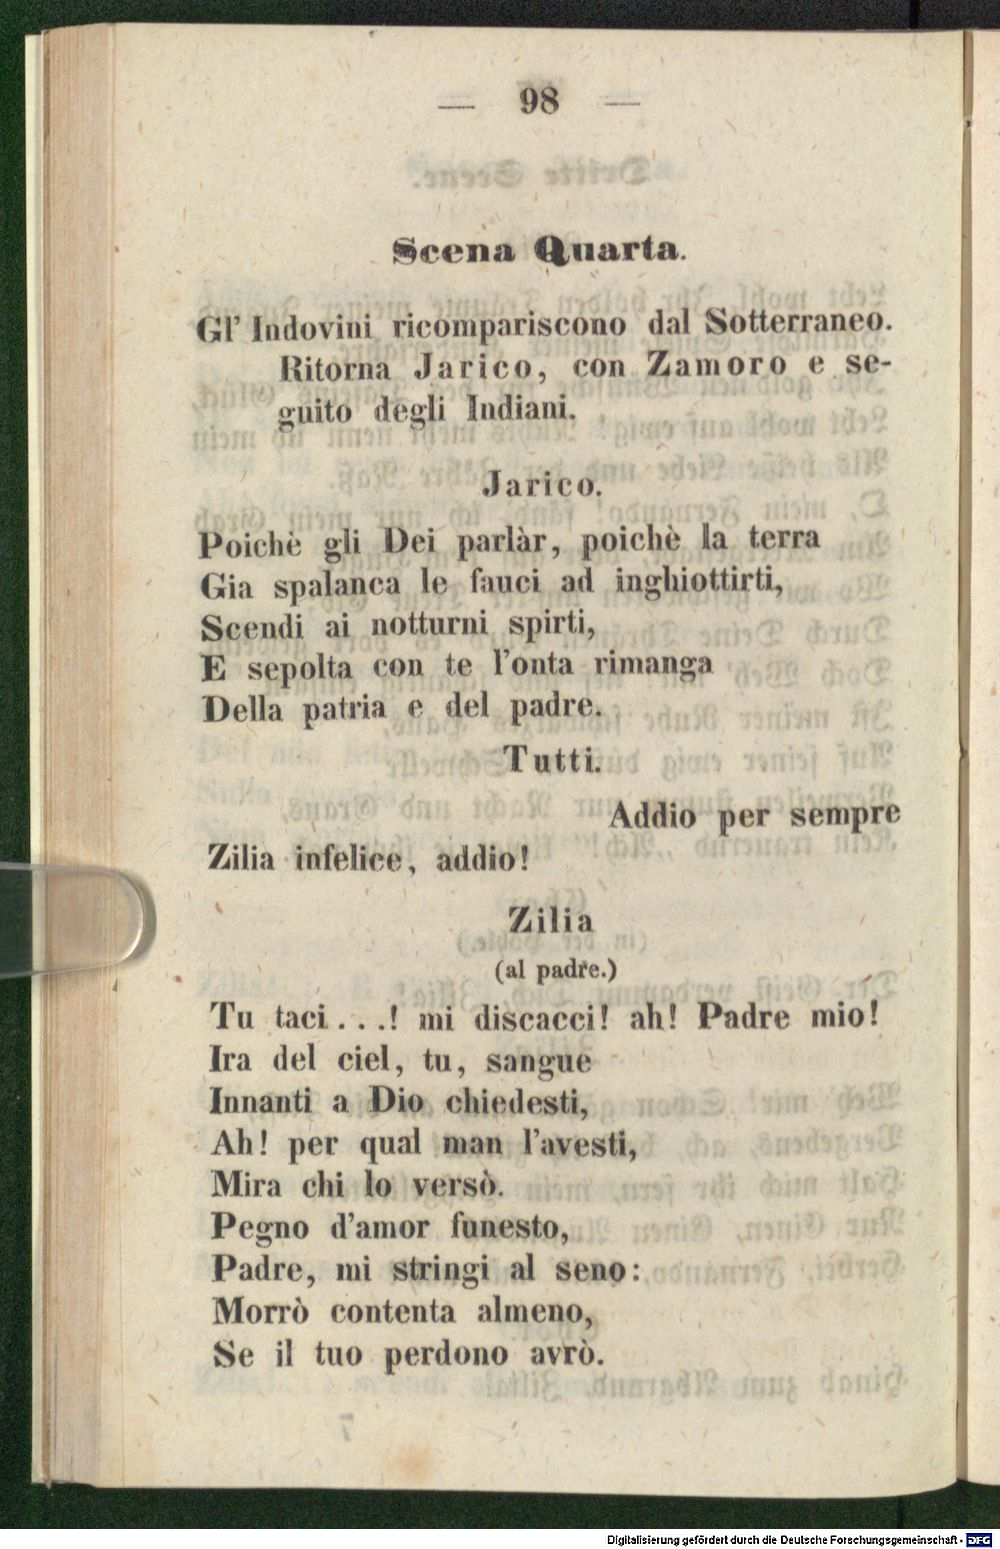 — 98 —
Scena Quarta.
Gl' Indovini ricompariscono dal Sotterraneo.
Ritorna Jarico, con Zamoro e se-
guito degli Indiani.
Jarico.
Poichè gli Dei parlàr, poichè la terra
Gia spalanca le fauci ad inghiottirti,
Scendi ai notturni spirti,
E sepolta con te l'onta rimanga
Della patria e del padre.
Tutti.
Addio per sempre
Zilia infelice, addio!
Zilia
(al padre.)
Tu taci...! mi discacci! ah! Padre mio!
Ira del ciel, tu, sangue
Innanti a Dio chiedesti,
Ah! per qual man l'avesti,
Mira chi lo versò.
Pegno d'amor funesto,
Padre, mi stringi al seno:
Morrò contenta almeno,
Se il tuo perdono avrò.
Digitalisierung gefördert durch die Deutsche Forschungsgemeinschaft - DFG